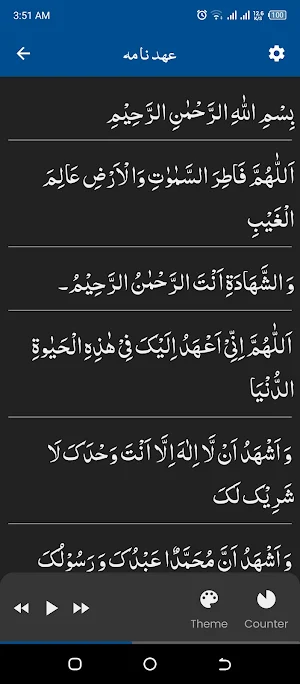 3:51 AM 12.6 K/s 100
عهد نامه
بِسْمِ اللّٰهِ الرَّحْمٰنِ الرَّحِيْمِ
اَللّٰهُمَّ فَاطِرَ السَّمٰوٰتِ وَالْاَرْضِ عَالِمَ
الْغَيْبِ
وَالشَّهَادَةِ اَنْتَ الرَّحْمٰنُ الرَّحِيْمُ۔
اَللّٰهُمَّ اِنِّیْۤ اَعْهَدُ اِلَيْکَ فِیْ هٰذِهِ الْحَيٰوةِ
الدُّنْيَا
وَاَشْهَدُ اَنْ لَّا اِلٰهَ اِلَّا اَنْتَ وَحْدَکَ لَا
شَرِيْکَ لَکَ
وَاَشْهَدُ اَنَّ مُحَمَّدًا عَبْدُکَ وَرَسُوْلُکَ
Theme Counter